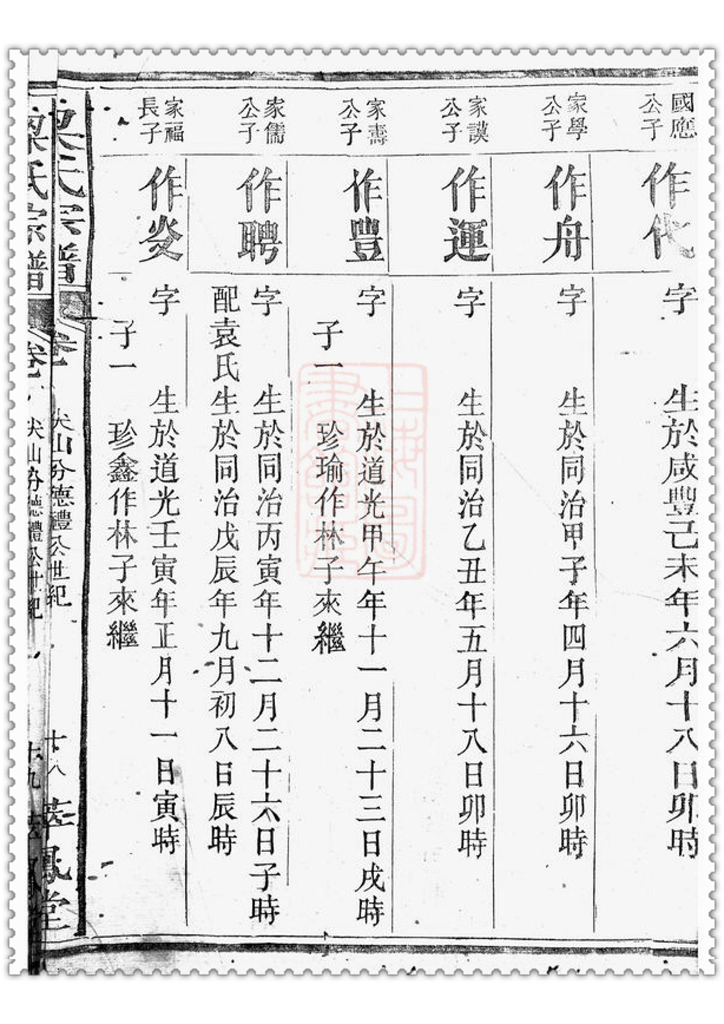 國應
公子
作化
字
生於咸豐己未年六月十八日卯時
家學
公子
作舟
字
生於同治甲子年四月十六日卯時
家謨
公子
作運
字
生於同治乙丑年五月十八日卯時
家壽
公子
作豐
字
生於道光甲午年十一月二十三日戌時
子一
珍瑜作林子來繼
家儒
公子
作聘
字
生於同治丙寅年十二月二十六日子時
配袁氏生於同治戊辰年九月初八日辰時
家福
長子
作炎
字
生於道光壬寅年正月十一日寅時
子一
珍鑫作林子來繼
氏宗譜
卷
尖山分德禮公世紀
十八
鳳堂
氏宗譜
卷
尖山分德禮公世紀
十九